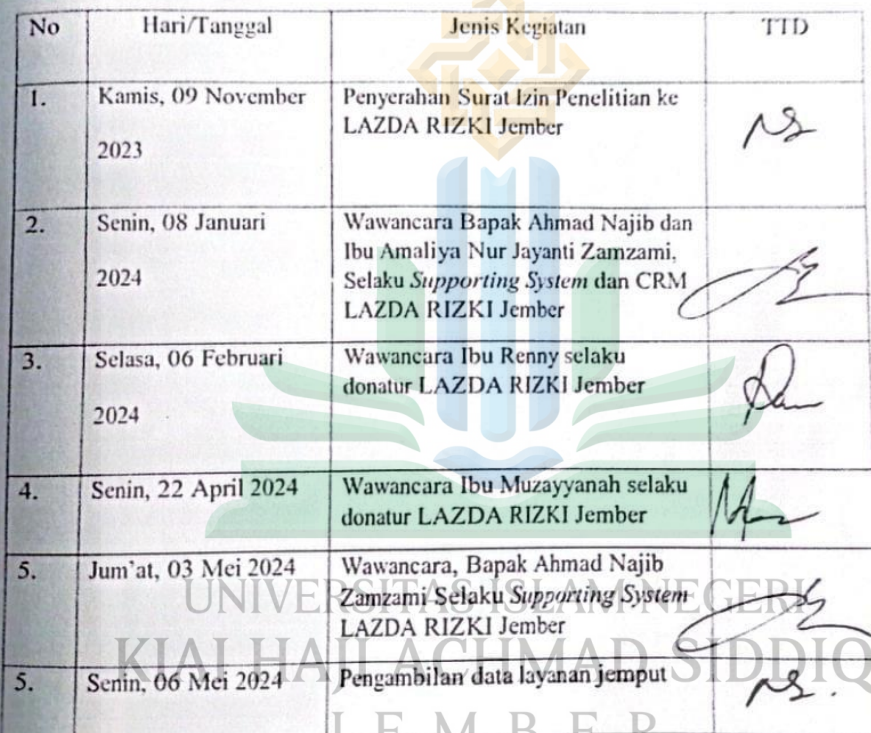 No Hari/Tanggal Jenis Kegiatan TTD
1. Kamis, 09 November Penyerahan Surat Izin Penelitian ke
LAZDA RIZKI Jember
2023
2. Senin, 08 Januari Wawancara Bapak Ahmad Najib dan
Ibu Amaliya Nur Jayanti Zamzami,
2024 Selaku Supporting System dan CRM
LAZDA RIZKI Jember
3. Selasa, 06 Februari Wawancara Ibu Renny selaku
donatur LAZDA RIZKI Jember
2024
4. Senin, 22 April 2024 Wawancara Ibu Muzayyanah selaku
donatur LAZDA RIZKI Jember
5. Jum'at, 03 Mei 2024 Wawancara, Bapak Ahmad Najib
Zamzami Selaku Supporting System
LAZDA RIZKI Jember
5. Senin, 06 Mei 2024 Pengambilan data layanan jemput
UNIVERSITAS ISLAM NEGERI
KIAI HAJI ACHMAD SIDDIQ
JEMBER